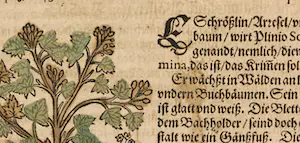 ESchrößlin/Arresel/
baum/wirt Plinio
genandt/nemlich/
mina,das ist/das Krimen
Er wächßt in Wälden an
vndern Buchbäumen. Sein
ist glatt vnd weiß. Die Blett
dem Bachholder/seind doch
stalt wie ein Gänßfuß. Die